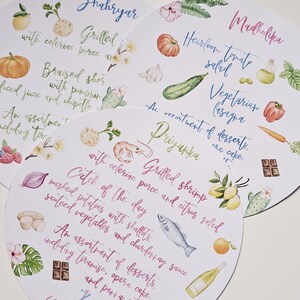 Shahryar
Grilled
with celeriac puree and
Braised
with pumpkin
juice and chipotle
An assortment
including
Madhulika
Heirloom tomato
salad
Vegetarian
lasagna
An assortment of desserts,
cake,
Priyanka
Grilled shrimp
with celeriac puree and citrus salad
Catch of the day
mashed potatoes with shallots,
sauteed vegetables and chardonnay sauce
An assortment of desserts,
including tiramisu, opera cake,
and panna